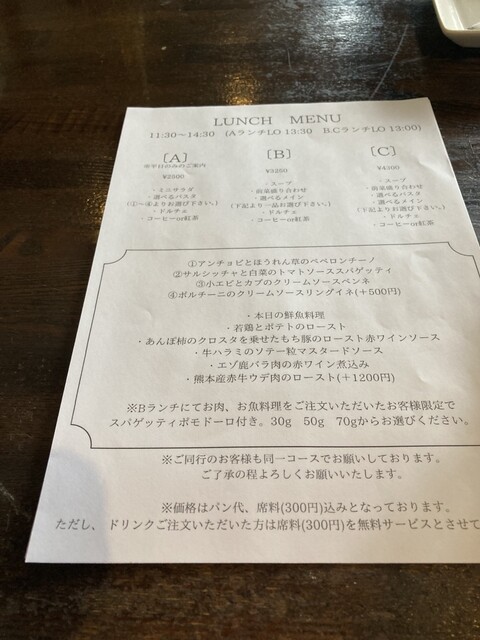 LUNCH MENU
11:30～14:30 (AランチLO 13:30 B.CランチLO 13:00)
[A]
※平日のみのご案内
¥2500
・ミニサラダ
・選べるパスタ
(①～④よりお選び下さい。)
・ドルチェ
・コーヒーor紅茶
[B]
¥3250
・スープ
・前菜盛り合わせ
・選べるメイン
(下記より一品お選び下さい。)
・ドルチェ
・コーヒーor紅茶
[C]
¥4300
・スープ
・前菜盛り合わせ
・選べるパスタ
・選べるメイン
(下記よりお選び下さい。)
・ドルチェ
・コーヒーor紅茶
①アンチョビとほうれん草のペペロンチーノ
②サルシッチャと白菜のトマトソーススパゲッティ
③小エビとカブのクリームソースペンネ
④ポルチーニのクリームソースリングイネ(+500円)
・本日の鮮魚料理
・若鶏とポテトのロースト
・あんぽ柿のクロスタを乗せたもち豚のロースト赤ワインソース
・牛ハラミのソテー粒マスタードソース
・エゾ鹿バラ肉の赤ワイン煮込み
・熊本産赤牛ウデ肉のロースト(+1200円)
※Bランチにてお肉、お魚料理をご注文いただいたお客様限定で
スパゲッティポモドーロ付き。30g 50g 70gからお選びください。
※ご同行のお客様も同一コースでお願いしております。
ご了承の程よろしくお願いいたします。
※価格はパン代、席料(300円)込みとなっております。
ただし、ドリンクご注文いただいた方は席料(300円)を無料サービスとさせて